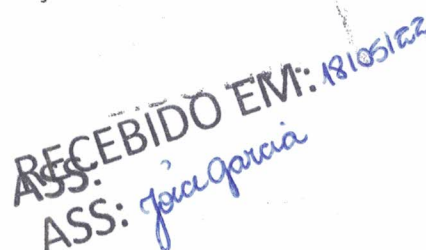 RECEBIDO EM: 18/05/22
ASS:
ASS: Joice Garcia